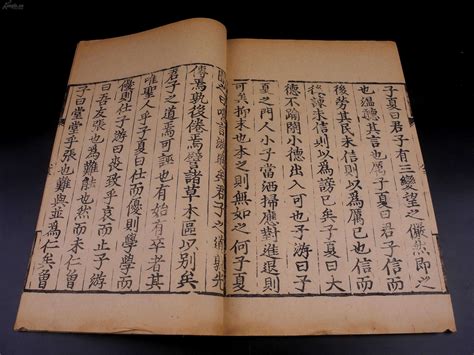 子夏曰君子有三變望之儼然即之
也溫聽其言也厲子夏曰君子信而
後勞其民未信則以為厲己也信而
後諫未信則以為謗己也子夏曰大
德不踰閑小德出入可也子游曰子
夏之門人小子當洒掃應對進退則
可矣抑末也本之則無如之何子夏
聞之曰噫言游過矣君子之道孰先
傳焉孰後倦焉譬諸草木區以別矣
君子之道焉可誣也有始有卒者其
唯聖人乎子夏曰仕而優則學學而
優則仕子游曰喪致乎哀而止子游
曰吾友張也為難能也然而未仁曾
子曰堂堂乎張也難與並為仁矣曾